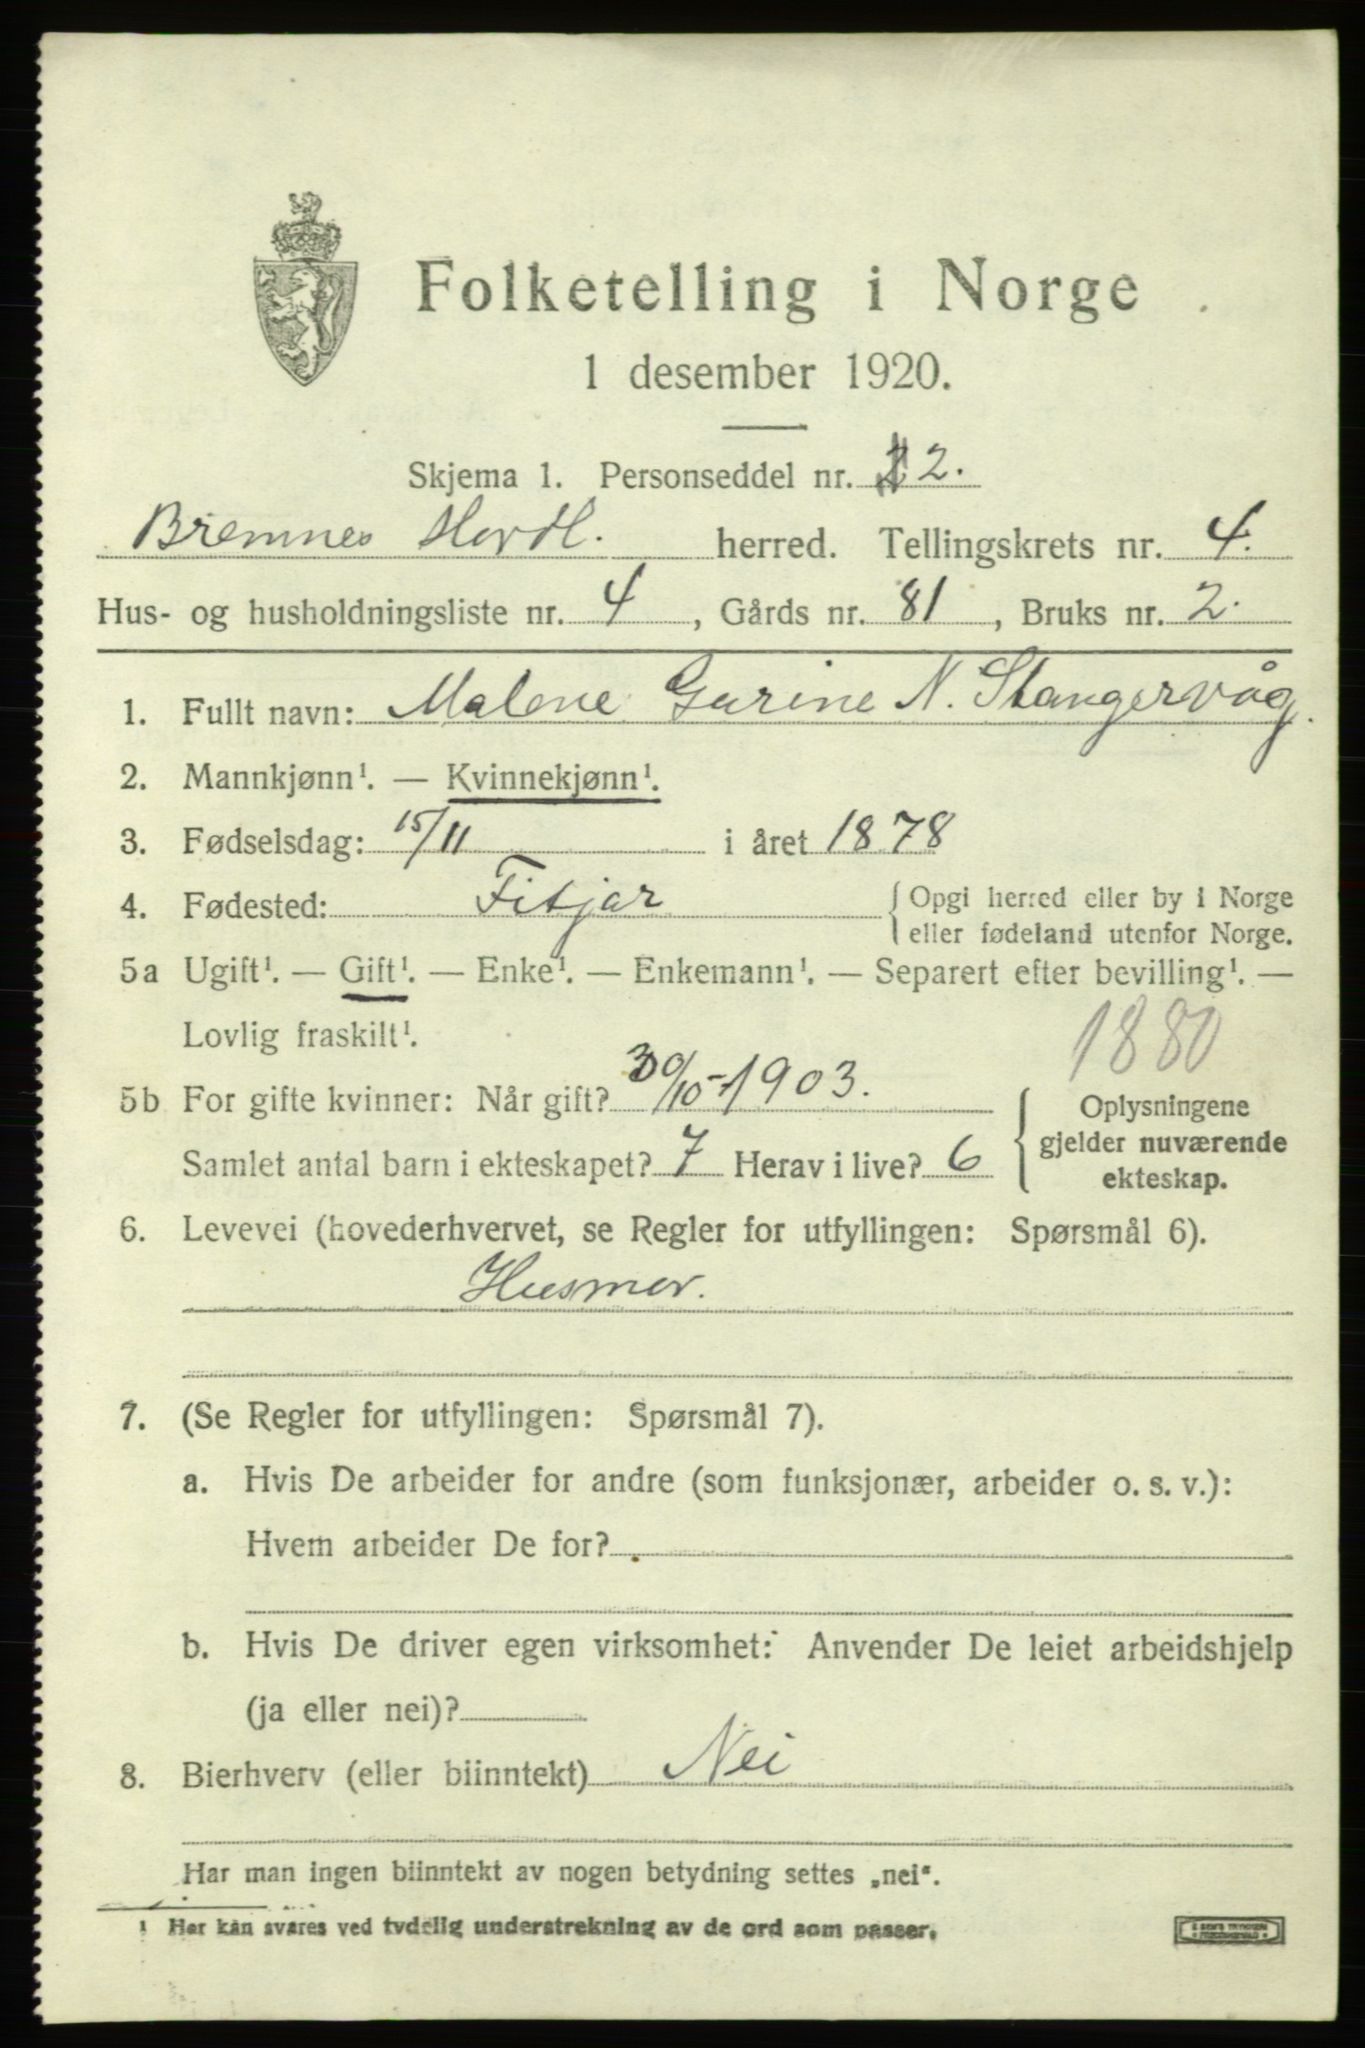 Folketelling i Norge
1 desember 1920.
Skjema 1. Personseddel nr. 2.
Bremnes Hordl. herred. Tellingskrets nr. 4.
Hus- og husholdningsliste nr. 4, Gårds nr. 81, Bruks nr. 2.
1. Fullt navn: Malene Gurine N. Stangervåg.
2. Mannkjønn¹. — Kvinnekjønn¹.
3. Fødselsdag: 15/11 i året 1878
4. Fødested: Fitjar { Opgi herred eller by i Norge
eller fødeland utenfor Norge.
5a Ugift¹. — Gift¹. — Enke¹. — Enkemann¹. — Separert efter bevilling¹. —
Lovlig fraskilt¹.
1880
5b For gifte kvinner: Når gift? 30/10-1903.
Samlet antal barn i ekteskapet? 7 Herav i live? 6
{ Oplysningene
gjelder nuværende
ekteskap.
6. Levevei (hovederhvervet, se Regler for utfyllingen: Spørsmål 6).
Husmor.
7. (Se Regler for utfyllingen: Spørsmål 7).
a. Hvis De arbeider for andre (som funksjonær, arbeider o. s. v.):
Hvem arbeider De for?
b. Hvis De driver egen virksomhet: Anvender De leiet arbeidshjelp
(ja eller nei)?
8. Bierhverv (eller biinntekt) Nei
Har man ingen biinntekt av nogen betydning settes „nei“.
¹ Her kan svares ved tydelig understrekning av de ord som passer.